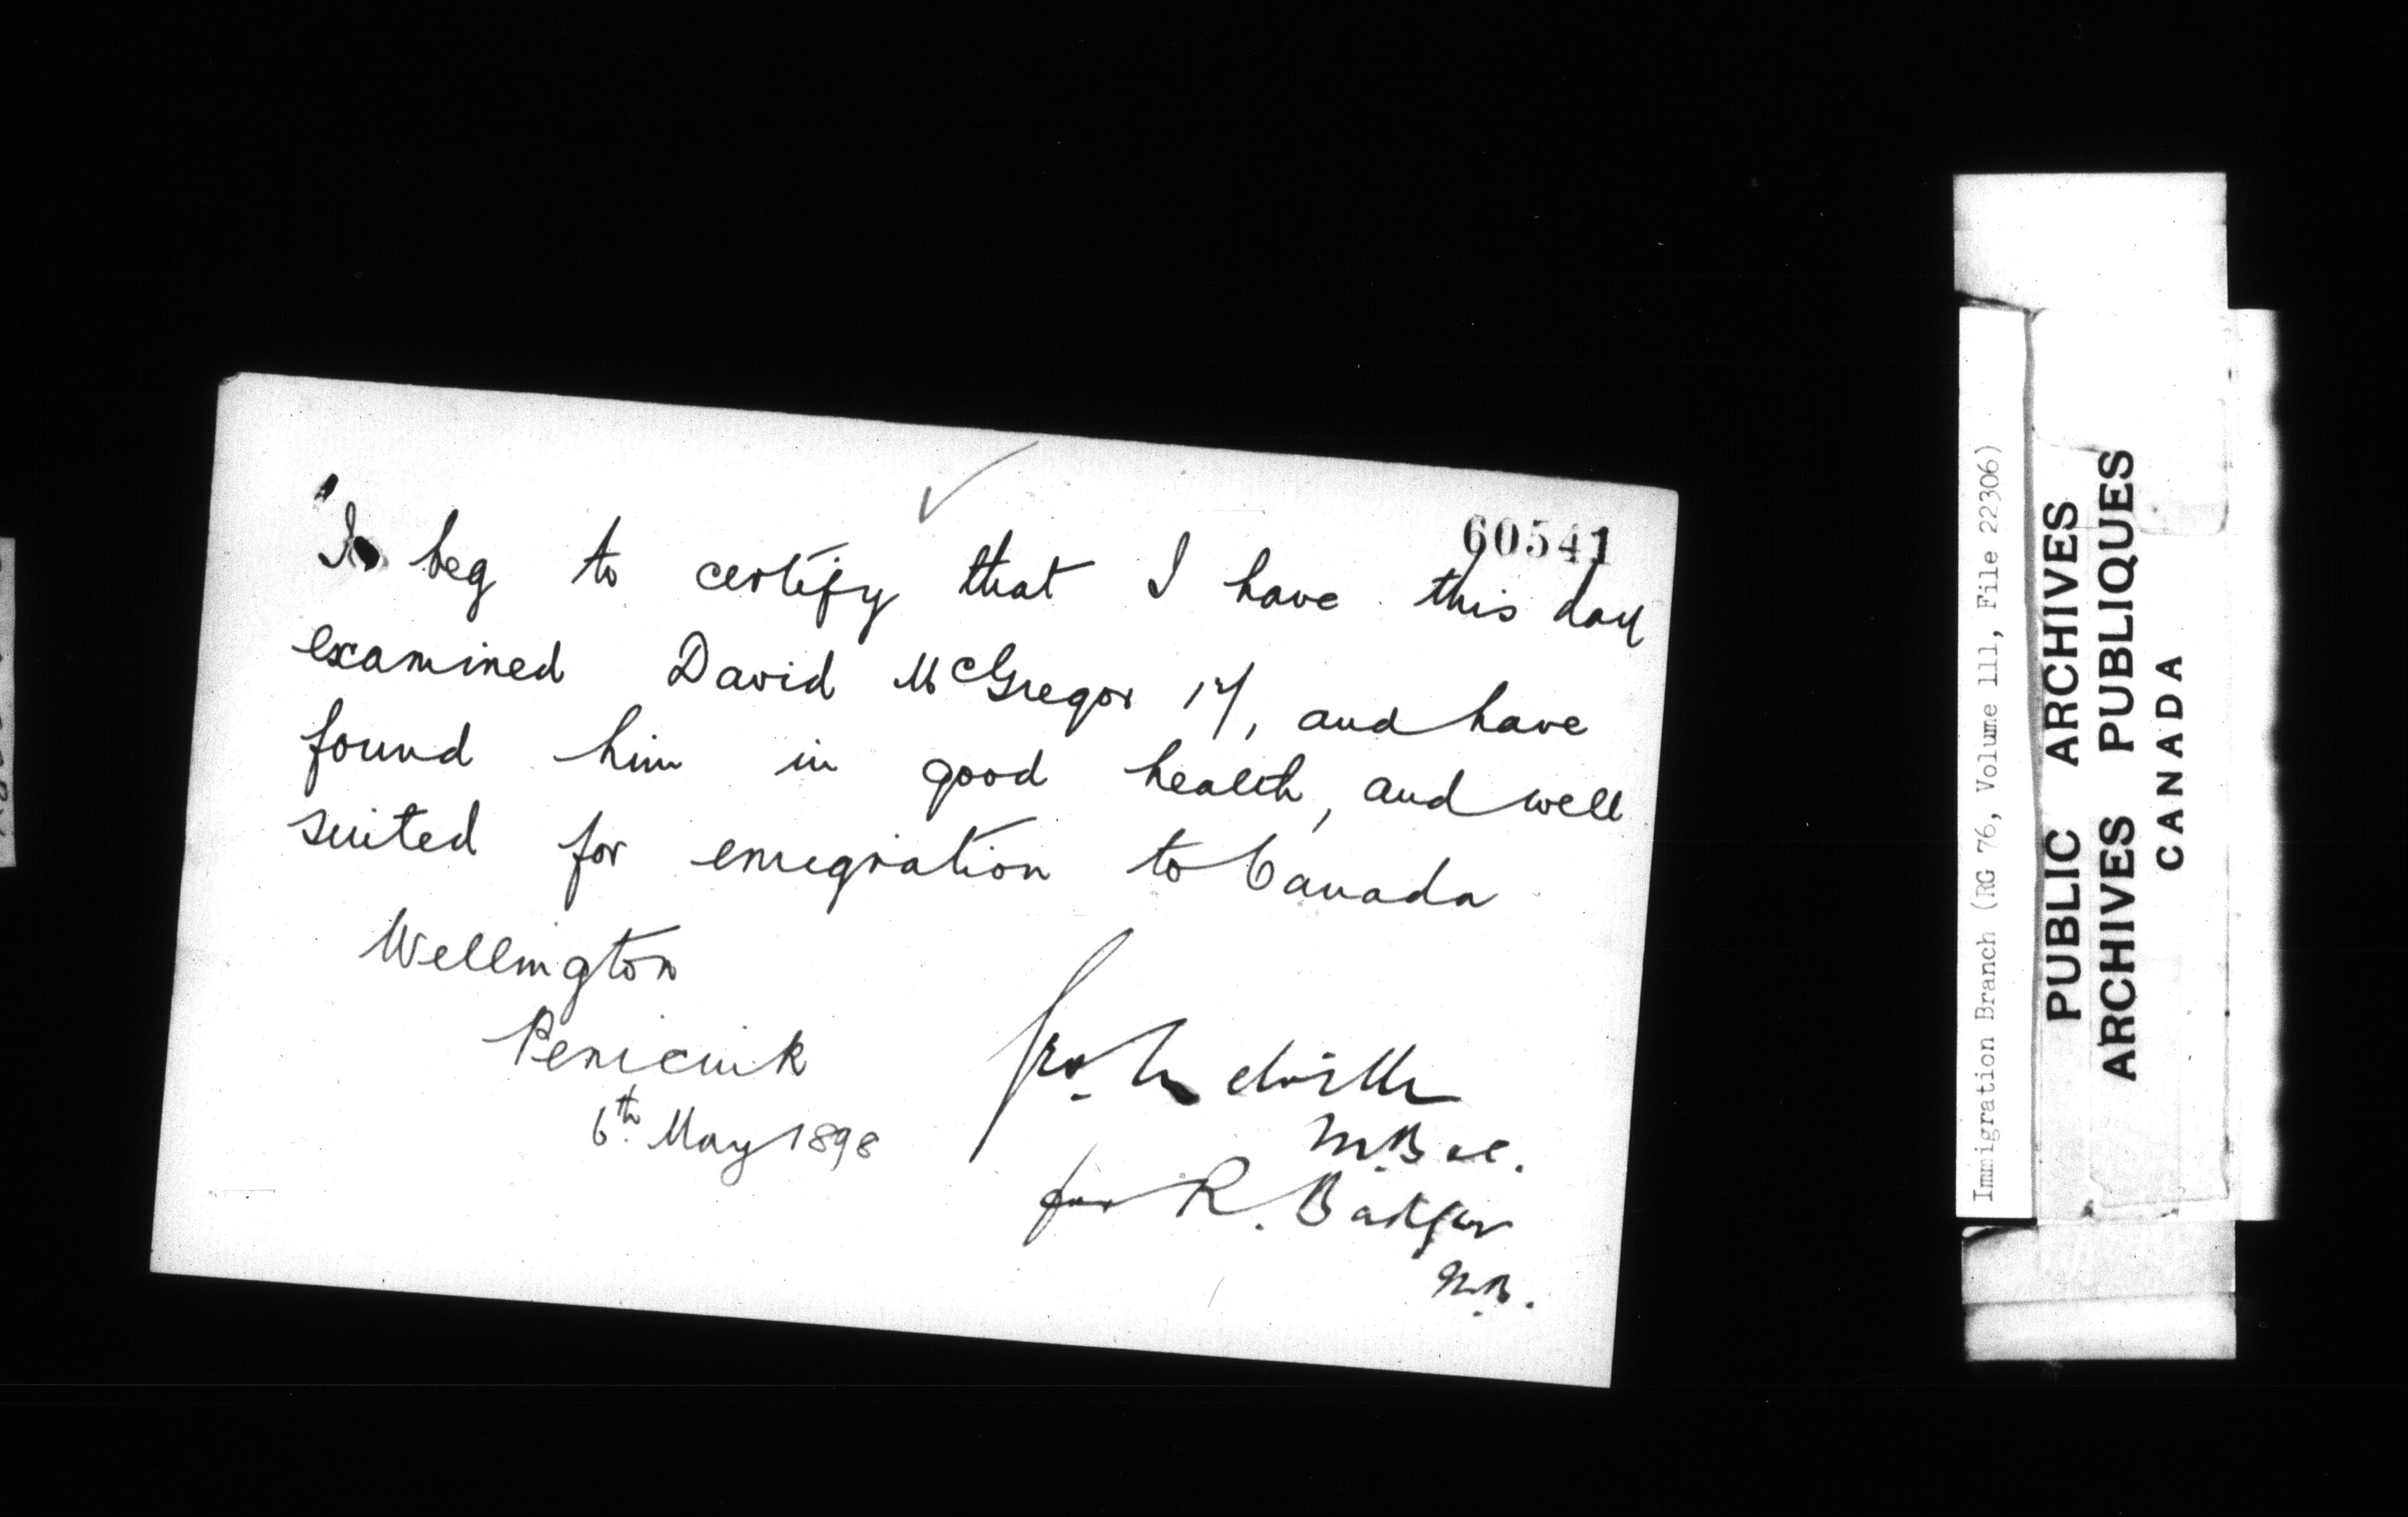 60541
I beg to certify that I have this day
examined David McGregor 17, and have
found him in good health, and well
suited for emigration to Canada
Wellington
Penicuik
6th May 1898
Jno. Melville
M.B. &c.
for R. Badger
M.B.
Immigration Branch (RG 76, Volume 111, File 22306)
PUBLIC ARCHIVES
ARCHIVES PUBLIQUES
CANADA